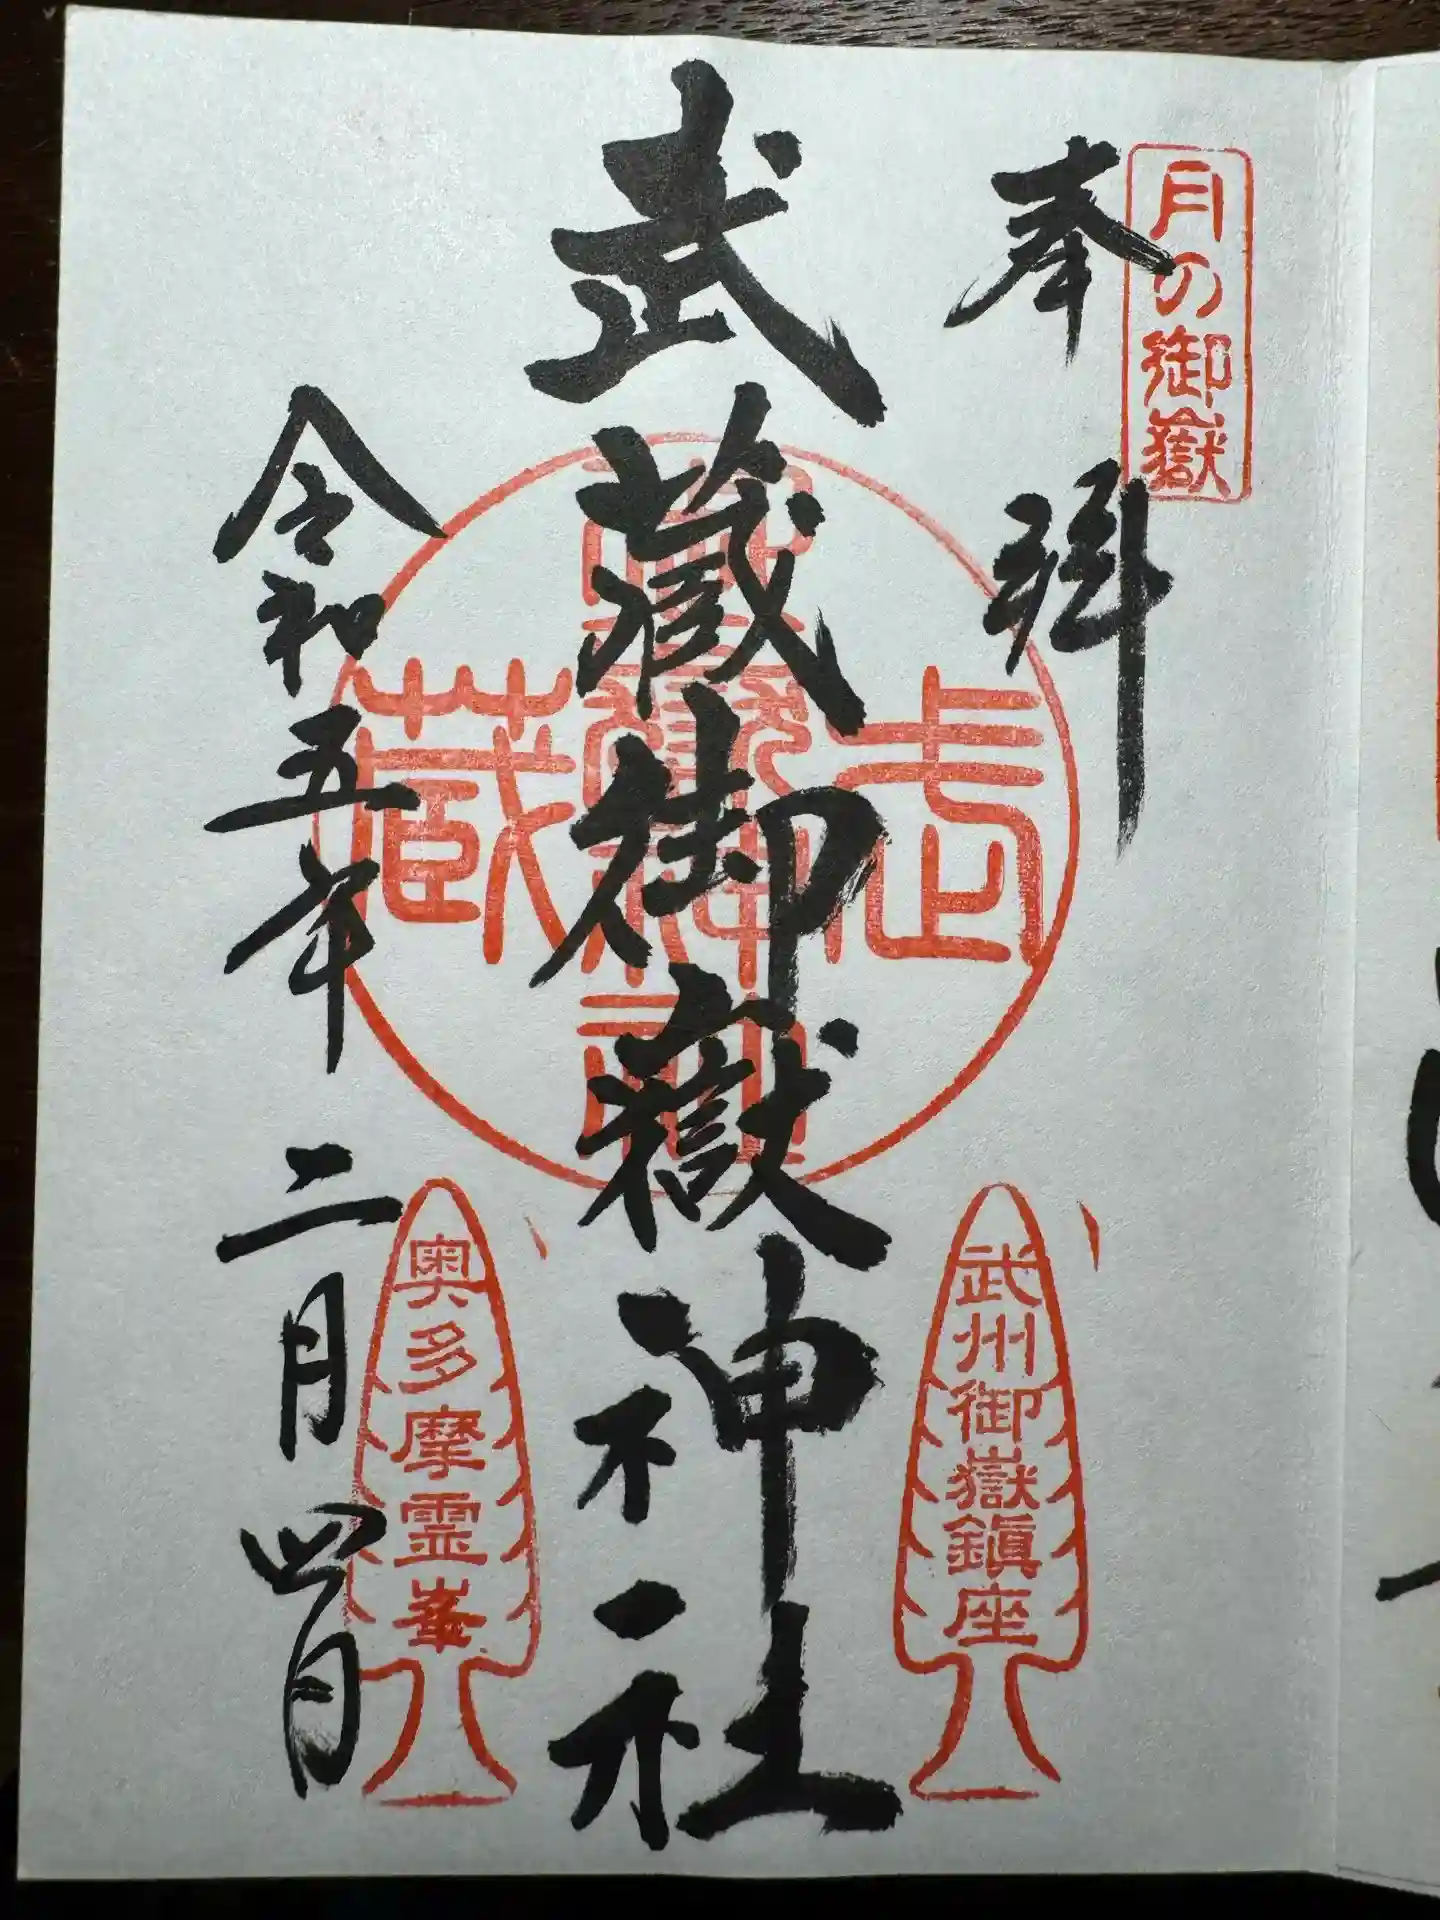 月の御嶽
奉拝
武蔵御嶽神社
武蔵
武州御嶽鎮座
奥多摩霊峯
令和五年二月四日